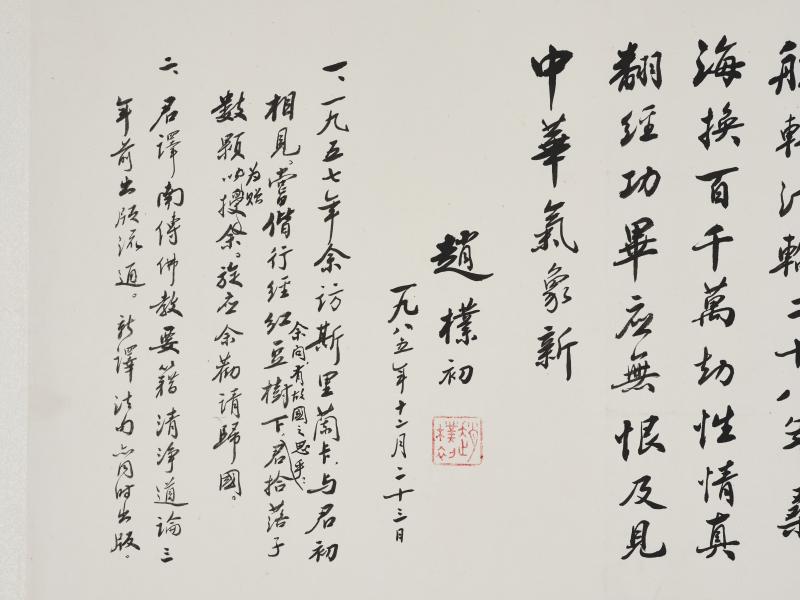 二十八年
海換百千萬劫性情真
翻經功畢應無恨及見
中華氣象新
趙樸初
一九八五年十二月二十三日
趙樸初
一、一九五七年余訪斯里蘭卡，与君初
相見。嘗偕行經紅豆樹下，君拾落子
余向有故國之思乎：
數顆以授余。旋应余勸請歸國。
为贈
二、君譯南傳佛教要籍清淨道論三
年前出版流通。新譯法句亦同时出版。